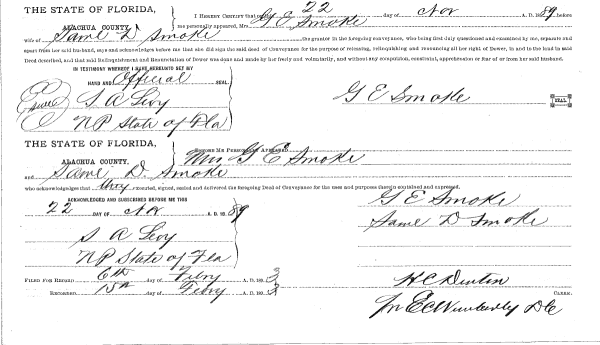 THE STATE OF FLORIDA,
ALACHUA COUNTY.
I HEREBY CERTIFY that on this 22 day of Nov A. D. 1889 before
me personally appeared, Mrs. G E Smoke
wife of Saml D Smoke the grantor in the foregoing conveyance, who being first duly questioned and examined by me, separate and
apart from her said husband, says and acknowledges before me that she did sign the said deed of Conveyance for the purpose of releasing, relinquishing and renouncing all her right of Dower, in and to the land in said
Deed described, and that said Relinquishment and Renunciation of Dower was done and made by her freely and voluntarily, and without any compulsion, constraint, apprehension or fear of or from her said husband.
IN TESTIMONY WHEREOF I HAVE HEREUNTO SET MY
HAND AND Official SEAL
S A Levy
NP State of Fla
G E Smoke
SEAL
THE STATE OF FLORIDA,
ALACHUA COUNTY.
BEFORE ME PERSONALLY APPEARED Mrs G E Smoke
and Saml D. Smoke
who acknowledges that they executed, signed, sealed and delivered the foregoing Deed of Conveyance for the uses and purposes therein contained and expressed.
ACKNOWLEDGED AND SUBSCRIBED BEFORE ME THIS
22 DAY OF Nov A. D. 1889
G E Smoke
Saml D Smoke
S A Levy
NP State of Fla
FILED FOR RECORD 6th day of Febry A. D. 1893
RECORDED 15th day of Febry A. D. 1893
H C Denton
CLERK.
E C Wimberly DC